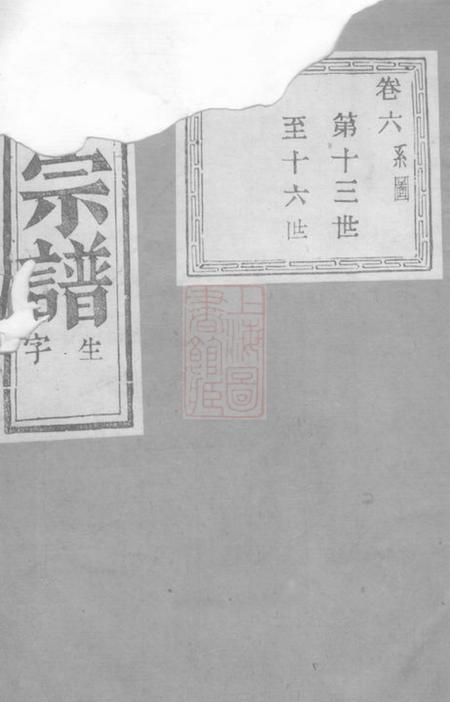 卷六系圖
第十三世
至十六世
宗譜
生
字
上海圖書館藏